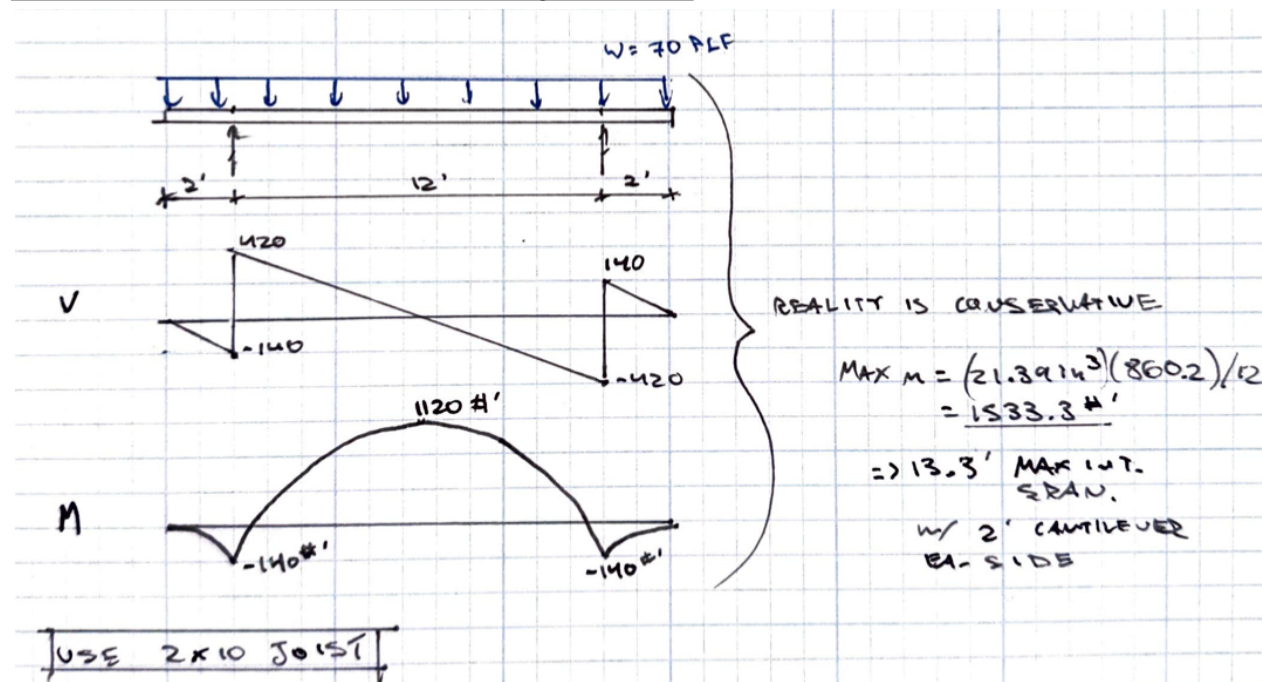 W = 70 PLF
2' 12' 2'
420
V
-140
140
-420
1120 #'
M
-140 #'
-140 #'
REALITY IS CONSERVATIVE
MAX M = (21.39 in³)(860.2)/12
= 1533.3 #'
=> 13.3' MAX INT.
SPAN.
w/ 2' CANTILEVER
EA. SIDE
USE 2x10 JOIST